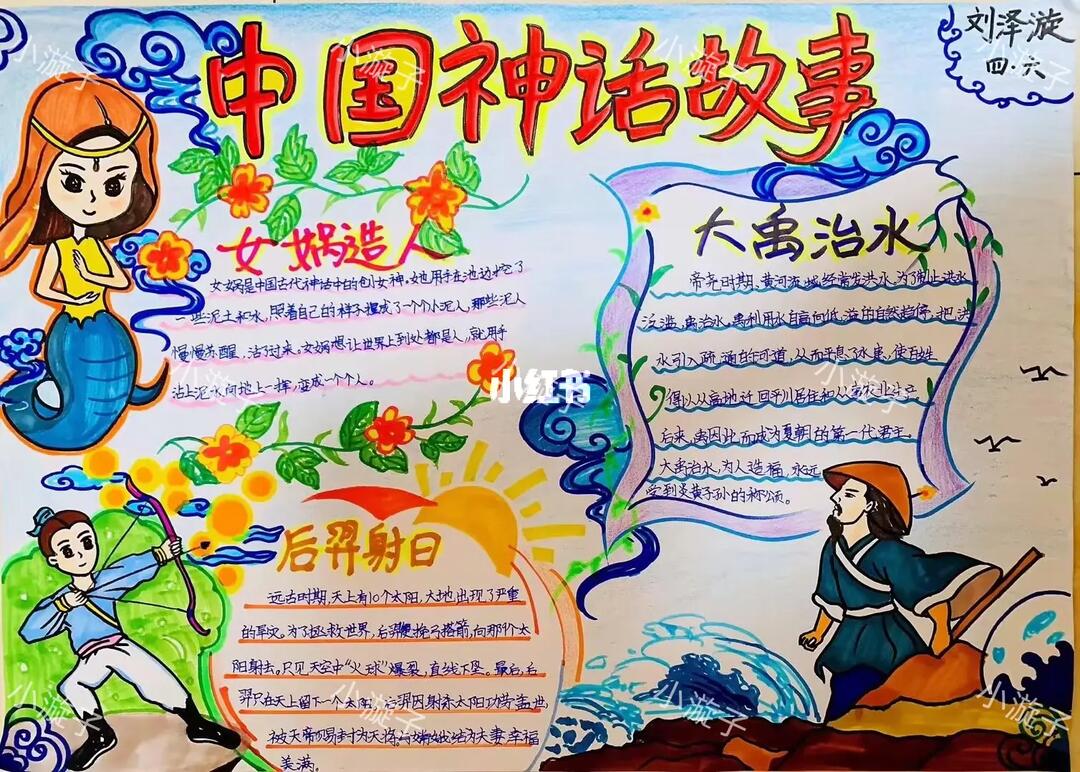 中国神话故事
刘泽漩
四·六
女娲造人
女娲是中国古代神话中的创女神。她用手在池边挖了
一些泥土和水，照着自己的样子捏成了一个个小泥人，那些泥人
慢慢苏醒，活了过来。女娲想让世界上到处都是人，就用手
沾上泥水向地上一挥，变成一个个人。
大禹治水
帝尧时期，黄河流域经常发洪水，为了制止洪水
泛滥，禹治水，禹利用水自高向低流的自然趋势，把洪
水引入疏通的河道，从而平息了水患，使百姓
得以从高地迁回平川居住和从事农业生产，
后来，禹因此而成为夏朝的第一代君王。
大禹治水，为人造福，永远
受到炎黄子孙的称颂。
小红书
后羿射日
远古时期，天上有10个太阳，大地出现了严重
的旱灾。为了拯救世界，后羿便挽弓搭箭，向那个太
阳射去。只见天空中“火球”爆裂，直线下坠。最后，后
羿只在天上留下一个太阳。后羿因射杀太阳功劳盖世，
被天帝赐封为天将，与嫦娥结为夫妻幸福
美满。
小漩子
小漩子
小漩子
小漩子
小漩子
小漩子
小漩子
小漩子
小漩子